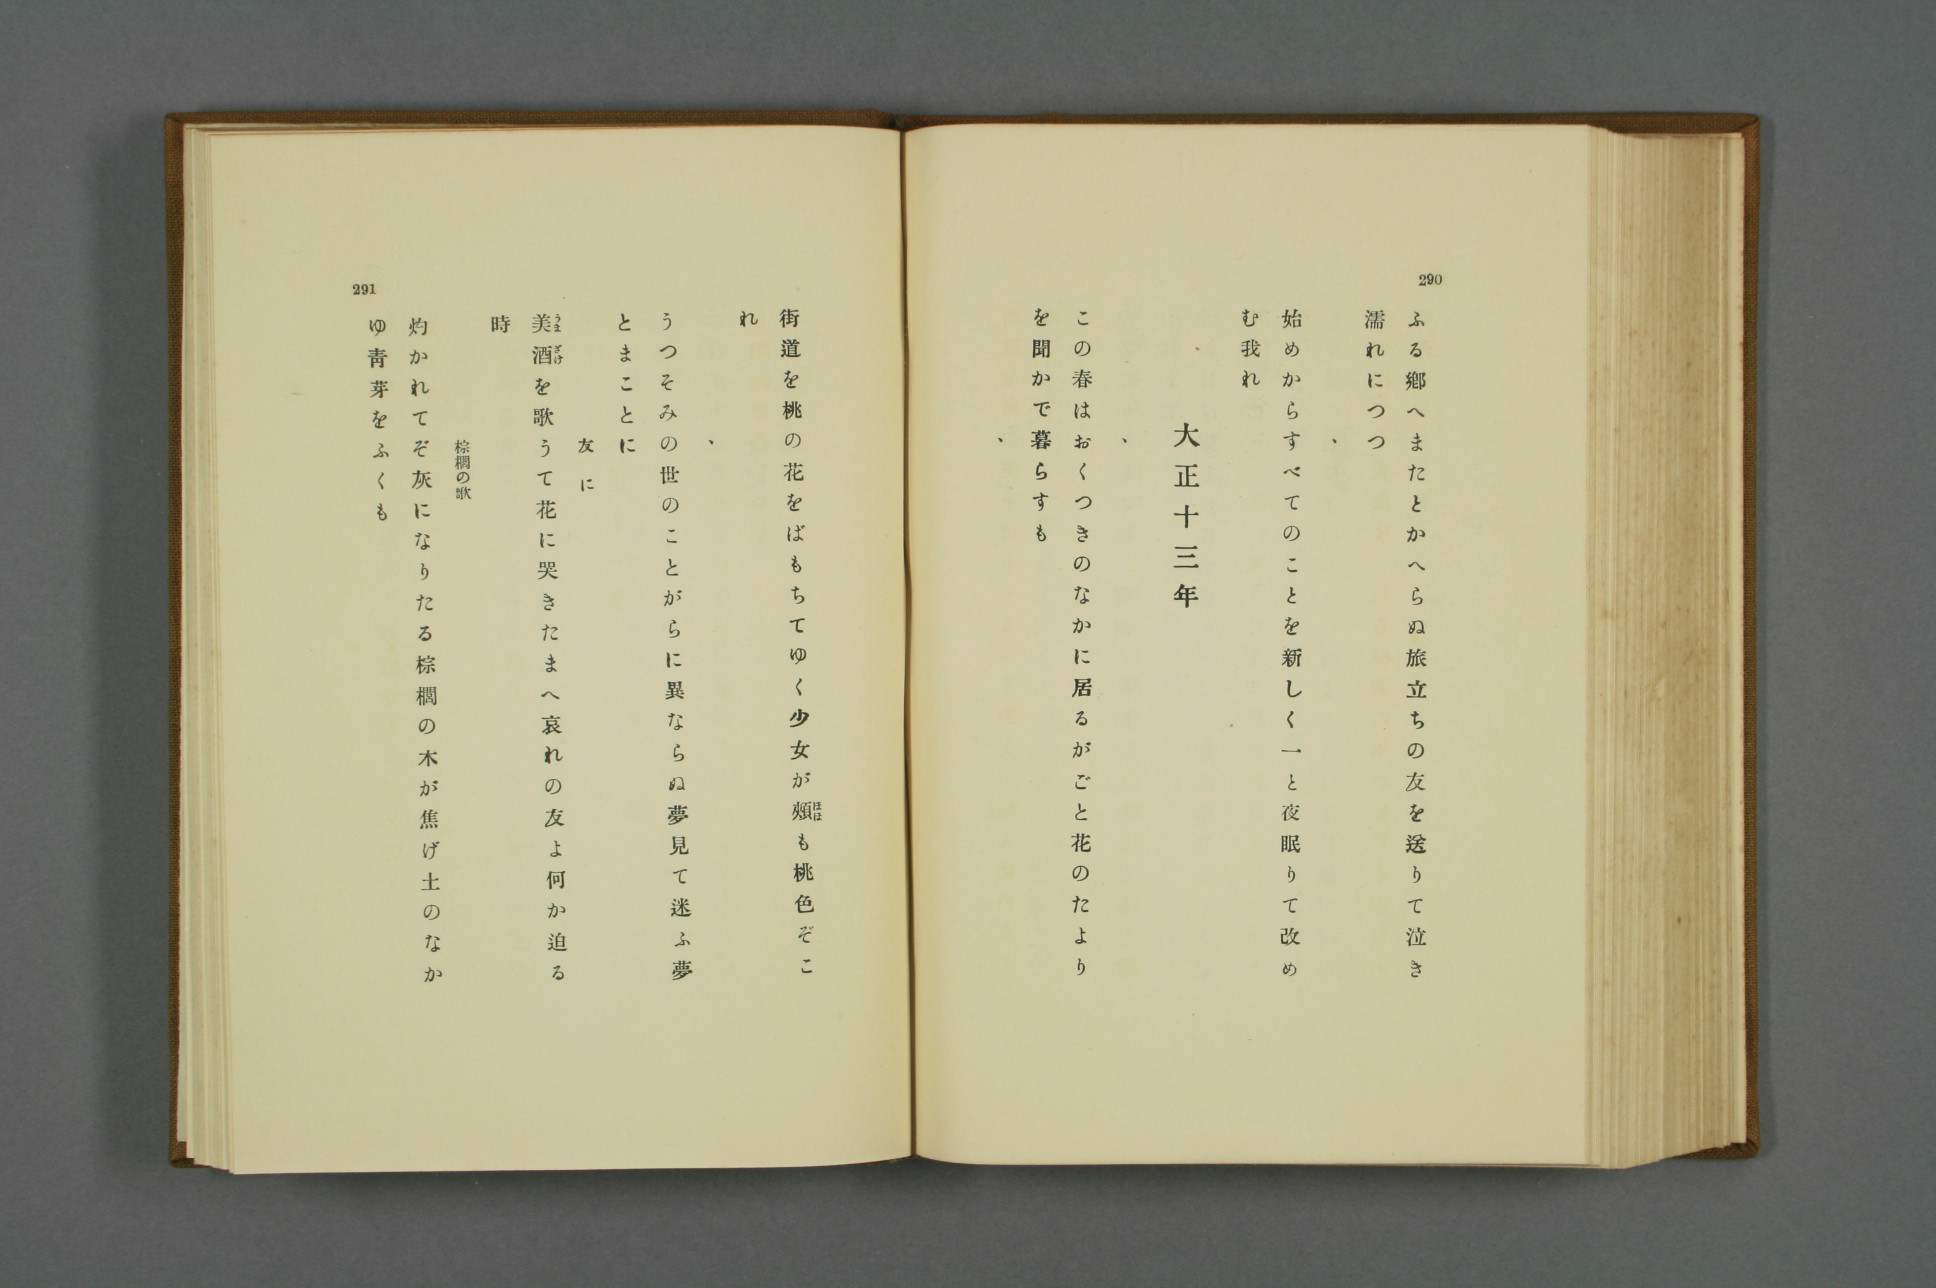 290
ふる鄕へまたとかへらぬ旅立ちの友を送りて泣き
濡れにつつ
、
始めからすべてのことを新しく一と夜眠りて改め
む我れ
大正十三年
、
この春はおくつきのなかに居るがごと花のたより
を聞かで暮らすも
、
街道を桃の花をばもちてゆく少女が頰ほほも桃色ぞこ
れ
、
うつそみの世のことがらに異ならぬ夢見て迷ふ夢
とまことに
友に
美うま酒ざけを歌うて花に哭きたまへ哀れの友よ何か迫る
時
棕櫚の歌
灼かれてぞ灰になりたる棕櫚の木が焦げ土のなか
ゆ靑芽をふくも
291